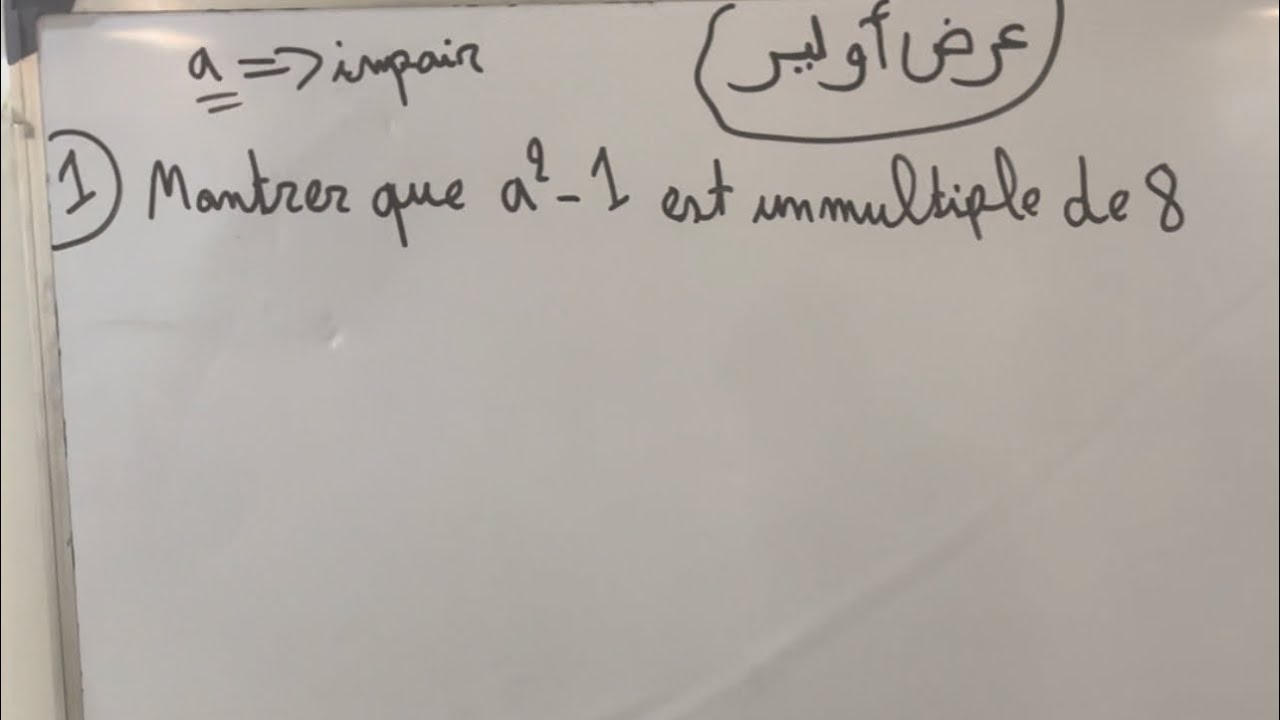 a => impair
(عرض أوليير)
1 Montrer que a² - 1 est un multiple de 8